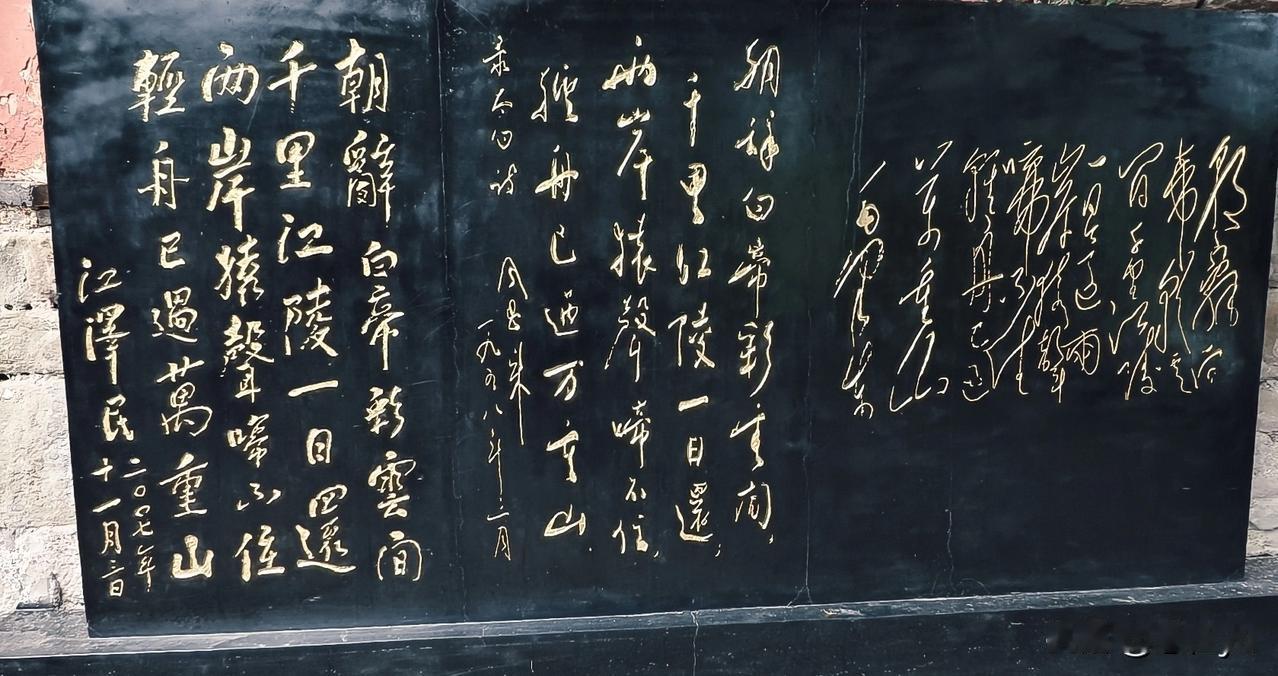 朝辭白
帝彩雲
间千里江陵
一日还兩
岸猿聲
啼不住
輕舟已过
万重山
毛泽东
朝辞白帝彩云间,
千里江陵一日還,
兩岸猿聲啼不住,
輕舟已过万重山.
录太白诗 周恩来
一九五八年三月
朝辭白帝彩雲間
千里江陵一日還
兩岸猿聲啼不住
輕舟已過萬重山
江澤民
二〇〇七年
十一月三日